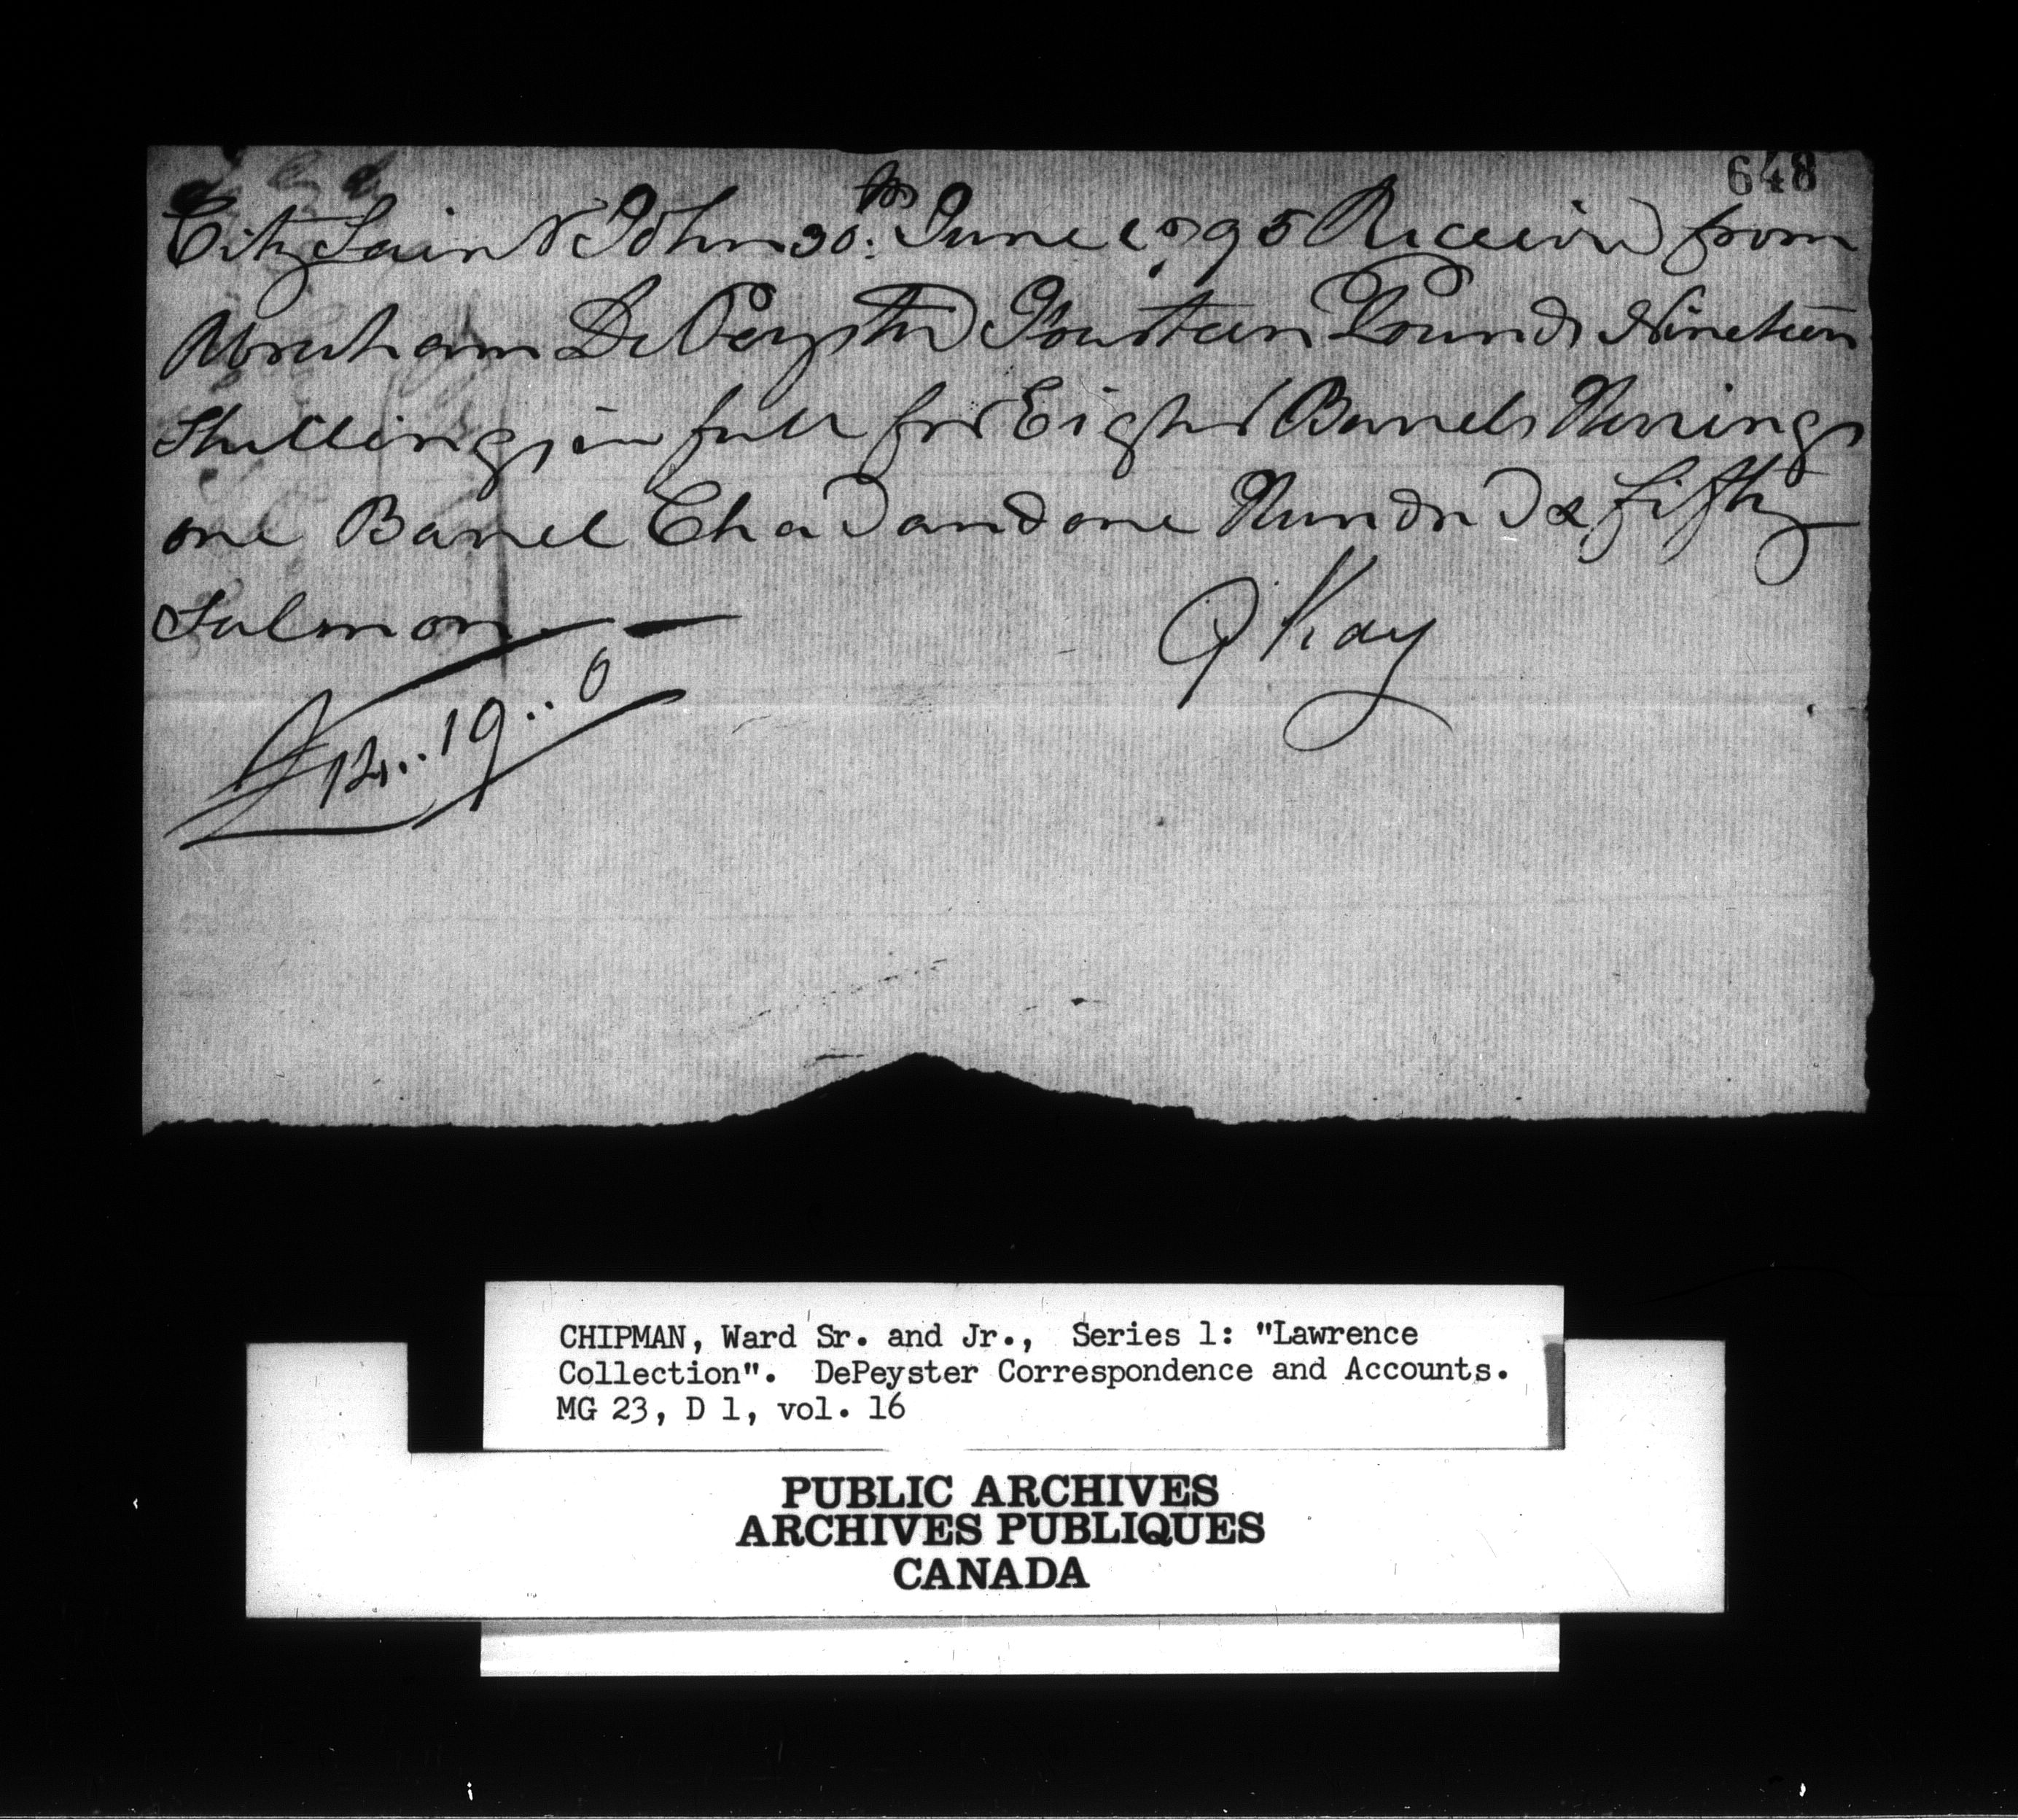 648
City Saint John 30th June 1795 Received from
Abraham DePeyster Fourteen Pounds Nineteen
Shillings in full for Eight Barrels Herrings
one Barrel Chad and one Hundred & fifty
Salmon
J Kay
£14..19..0
CHIPMAN, Ward Sr. and Jr., Series 1: "Lawrence
Collection". DePeyster Correspondence and Accounts.
MG 23, D 1, vol. 16
PUBLIC ARCHIVES
ARCHIVES PUBLIQUES
CANADA